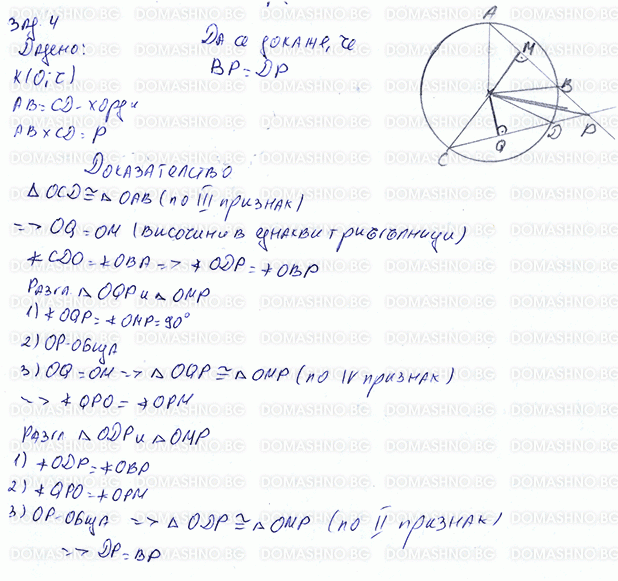 Зад. 4
Дадено:
K(O;r)
AB = CD - хорди
AB × CD = P
Да се докаже, че
BP = DP
A
M
B
P
D
Q
C
Доказателство
△ OCD ≅ △ OAB (по III признак)
=> OQ = OM (височини в еднакви триъгълници)
∢ CDO = ∢ OBA => ∢ ODP = ∢ OBP
Разгл △ OQP и △ OMP
1) ∢ OQP = ∢ OMP = 90°
2) OP - обща
3) OQ = OM => △ OQP ≅ △ OMP (по IV признак)
=> ∢ QPO = ∢ OPM
Разгл △ ODP и △ OMP
1) ∢ ODP = ∢ OBP
2) ∢ QPO = ∢ OPM
3) OP - обща => △ ODP ≅ △ OMP (по II признак)
=> DP = BP
DOMASHNO.BG